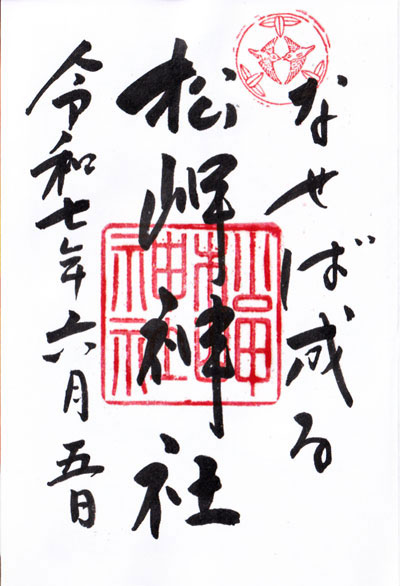 なせば成る
松岬神社
令和七年六月五日
松岬
神社